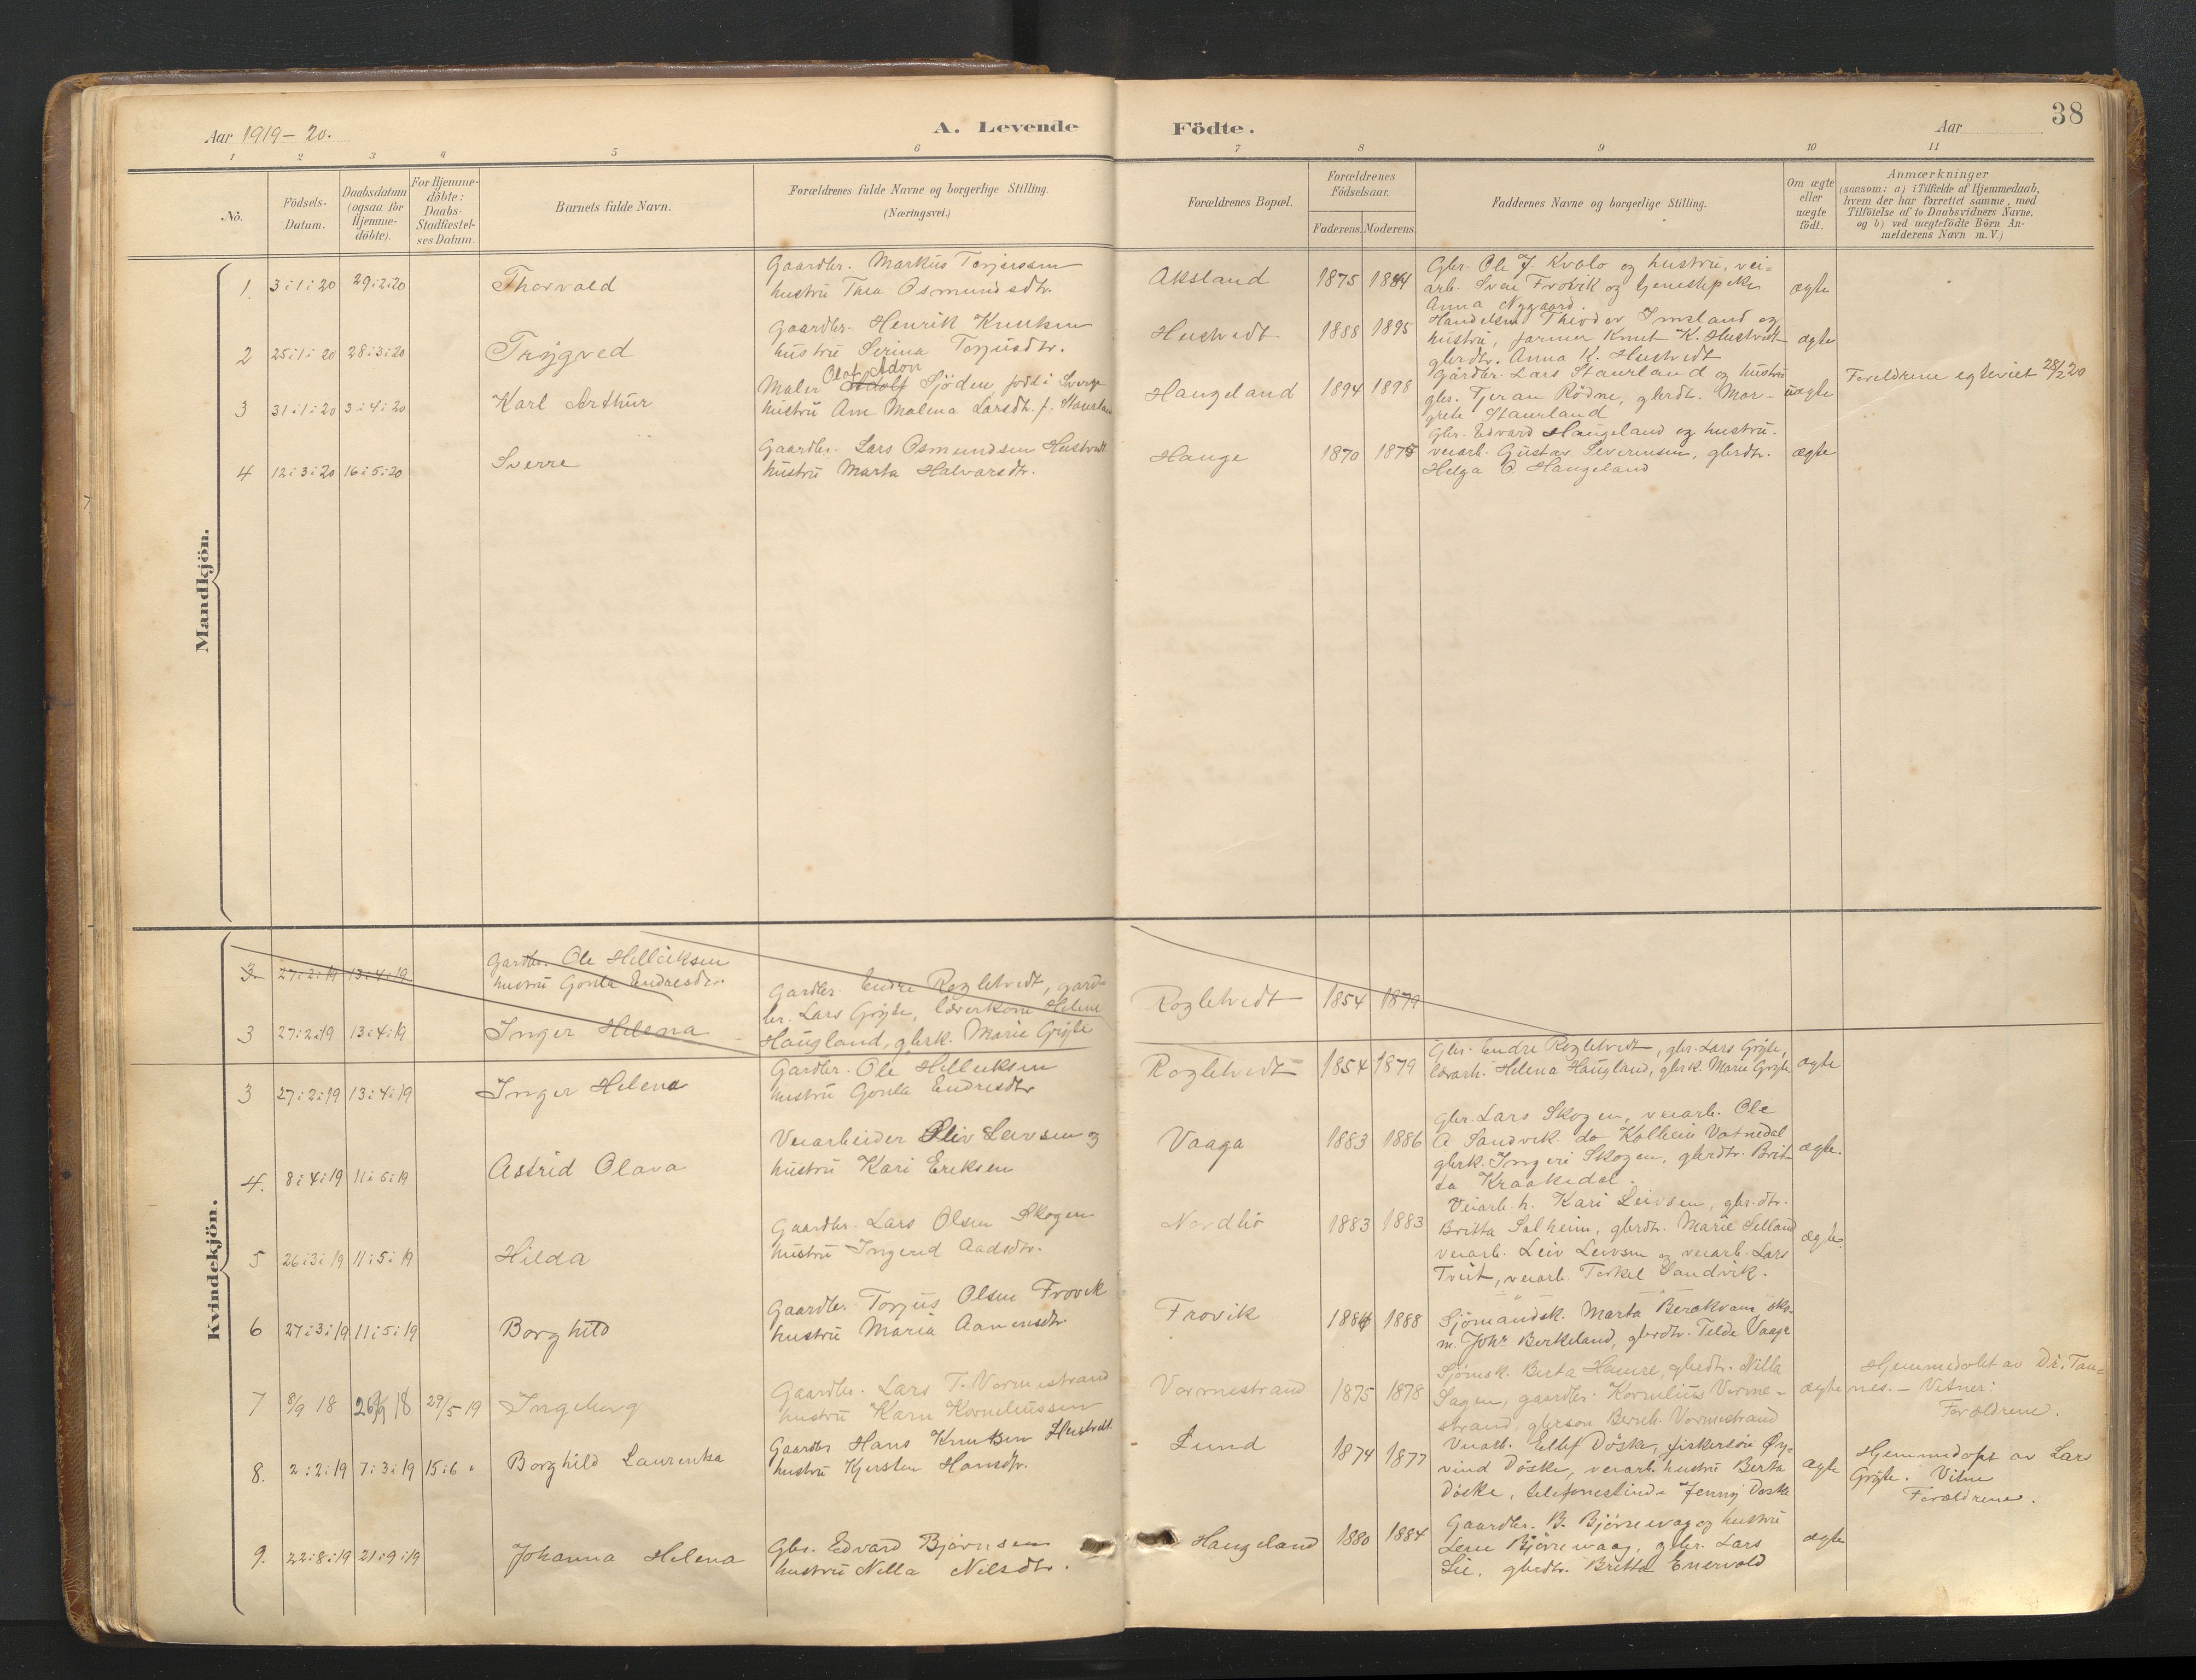 Aar 1919-20.
A. Levende Födte.
Aar
38
1 2 3 4 5 6 7 8 9 10 11
No.
Födsels-
Datum.
Daabsdatum
(ogsaa for
Hjemme-
döbte).
For Hjemme-
döbte:
Daabs-
Stadfæstel-
ses Datum.
Barnets fulde Navn.
Forældrenes fulde Navne og borgerlige Stilling.
(Næringsvei.)
Forældrenes Bopæl.
Forældrenes
Födselsaar.
Faderens. Moderens.
Faddernes Navne og borgerlige Stilling.
Om ægte
eller
uægte
födt.
Anmærkninger
(saasom: a) i Tilfælde af Hjemmedaab,
hvem der har forrettet samme, med
Tilföielse af to Daabsvidners Navne.
og b) ved uægtefödte Börn An-
melderens Navn m. V.)
Mandkjön.
1. 3:1:20 29:2:20 Thorvald
Gaardbr. Markus Torjersen
hustru Thea Osmundsdtr.
Aksland 1875 1884
Gbr. Ole J. Kvalo og hustru, vei-
arb. Svein Frovik og tjenestepike
Anna Nygaard.
ægte
2 25:1:20 28:3:20 Trygved
Gaardbr. Henrik Knutsen
hustru Serina Torjusdtr.
Hustvedt 1888 1895
Handelsm Theodor Imsland og
hustru, farmer Knut K. Hustvedt
gbrdtr. Anna K. Hustvedt
ægte
3 31:1:20 3:4:20 Karl Arthur
Olaf Adon
Maler Adolf Sjöden född i Sverge
hustru Ane Malena Larsdtr. f. Staurland
Haugeland 1894 1898
Gårdbr. Lars Staurland og hustru
gbs. Tjeran Rödne, gbrdt. Mar-
grete Staurland
uægte
Foreldrene egteviet 28/2 20
4 12:3:20 16:5:20 Sverre
Gaardbr. Lars Osmundsen Hustvedt
hustru Marta Halvarsdtr.
Hauge 1870 1875
Gbr. Edvard Haugeland og hustru.
veiarb. Gustav Severinsen, gbrdtr.
Helga O. Haugeland
ægte
Kvindekjön.
3 27:2:19 13:4:19
Gardbr. Ole Helleiksen
hustru Gonla Endresdtr.
3 27:2:19 13:4:19 Inger Helena
Gardbr. Endre Rogletvedt, gard-
br. Lars Gryte, lærerkone Helene
Haugland, gbrk. Marie Gryte
Rogletvedt 1854 1879
3 27:2:19 13:4:19 Inger Helena
Gardbr. Ole Helleiksen
hustru Gonla Endresdtr
Rogletvedt 1854 1879
Gbr. Endre Rogletvedt, gbr. Lars Gryte,
lærerk. Helena Haugland, gbrk. Marie Gryte
ægte
4. 8:4:19 11:5:19 Astrid Olava
Veiarbeider Leivsen og
hustru Kari Eriksen
Vaaga 1883 1886
Gbr. Lars Skogen, veiarb. Ole
A Sandvik do Kolbein Vatnedal
gbrk. Ingeri Skogen, gbrdtr. Brit-
ta Kraakedal.
ægte.
5 26:3:19 11:5:19 Hilda
Gaardbr. Lars Olsen Skogen
hustru Ingerid Aadsdtr.
Nordlio 1883 1883
Veiarb. h. Kari Leivsen, gbr. dtr.
Britta Solheim, gbrdtr. Marie Selland
veiarb. Leiv Leivsen og veiarb. Lars
Tveit, veiarb. Torkel Sandvik.
ægte.
6 27:3:19 11:5:19 Borghild
Gaardbr. Torjus Olsen Frovik
hustru Maria Aanensdtr.
Frovik 1884 1888
Sjömandsk. Marta Berakvam sko-
m. Johs Berkeland, gbrdtr. Telde Vaage
7 8/9 18 26/9 18 29/5 19 Ingeborg
Gaardbr. Lars T. Vormestrand
hustru Karn Korneliussen
Vormestrand 1875 1878
Sjömsk. Berta Hamre, gbrdtr. Nilla
Sagen, gaardbr. Kornelius Vorme-
strand, gbrson Bernh. Vormestrand
ægte
Hjemmedobt av Dr. Tan-
nes. - Vitner:
Forældrene.
8. 2:2:19 7:3:19 15:6 " Borghild Laurentsa
Gaardbr Hans Knutsen Hustvedt
hustru Kjersten Hansdtr.
Lund 1874 1877
Veiarb. Ellef Döske, fiskersön Öy-
vind Döske, veiarb. hustru Berta
Döske, telefonistinde Jenny Döske
ægte
Hjemmedöpt av Lars
Gryte. Vitne
Forældrene.
9. 22:8:19 21:9:19 Johanna Helena
Gbr. Edvard Björnsen
hustru Nella Nelsdtr.
Haugeland 1880 1884
Gaardbr. B. Björnevag og hustru
Lene Björnevaag, gbr. Lars
Lie, gbrdtr. Britta Enervold
ægte